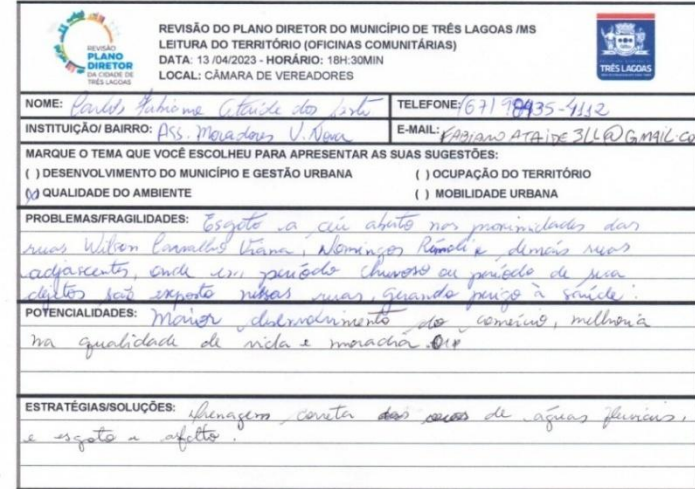 REVISÃO
PLANO
DIRETOR
DA CIDADE DE
TRÊS LAGOAS
REVISÃO DO PLANO DIRETOR DO MUNICÍPIO DE TRÊS LAGOAS /MS
LEITURA DO TERRITÓRIO (OFICINAS COMUNITÁRIAS)
DATA: 13 /04/2023 - HORÁRIO: 18H:30MIN
LOCAL: CÂMARA DE VEREADORES
TRÊS LAGOAS
NOME: Fabiano Ataide dos
TELEFONE: (67) 98435-4112
INSTITUIÇÃO/ BAIRRO: Ass. Moradores V. Nova
E-MAIL: FABIANO ATAIDE 3LL@GMAIL.CO
MARQUE O TEMA QUE VOCÊ ESCOLHEU PARA APRESENTAR AS SUAS SUGESTÕES:
( ) DESENVOLVIMENTO DO MUNICÍPIO E GESTÃO URBANA ( ) OCUPAÇÃO DO TERRITÓRIO
(X) QUALIDADE DO AMBIENTE ( ) MOBILIDADE URBANA
PROBLEMAS/FRAGILIDADES: Esgoto a céu aberto nas proximidades das
ruas Wilson Carvalho Viana, Domingos Rímoli e demais ruas
adjascentes, onde em período chuvoso ou período de seca
dejetos são exposto nessas ruas, gerando perigo à saúde.
POTENCIALIDADES: Maior desenvolvimento do comércio, melhoria
na qualidade de vida e moradia.
ESTRATÉGIAS/SOLUÇÕES: Drenagem correta de águas fluviais,
e esgoto e asfalto.